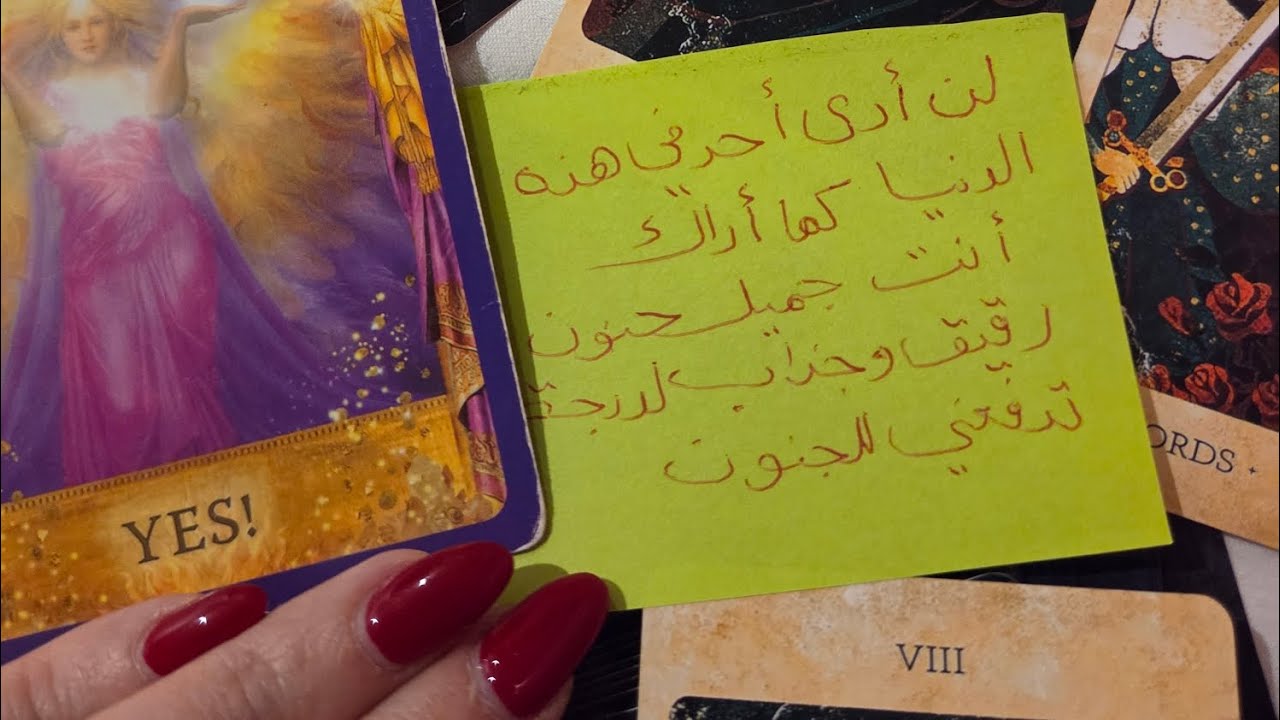 لن أرى أحد في هذه
الدنيا كما أراك
أنت جميل حنون
رقيق وجذاب لدرجة
تدفعني للجنون
YES!
ORDS
VIII